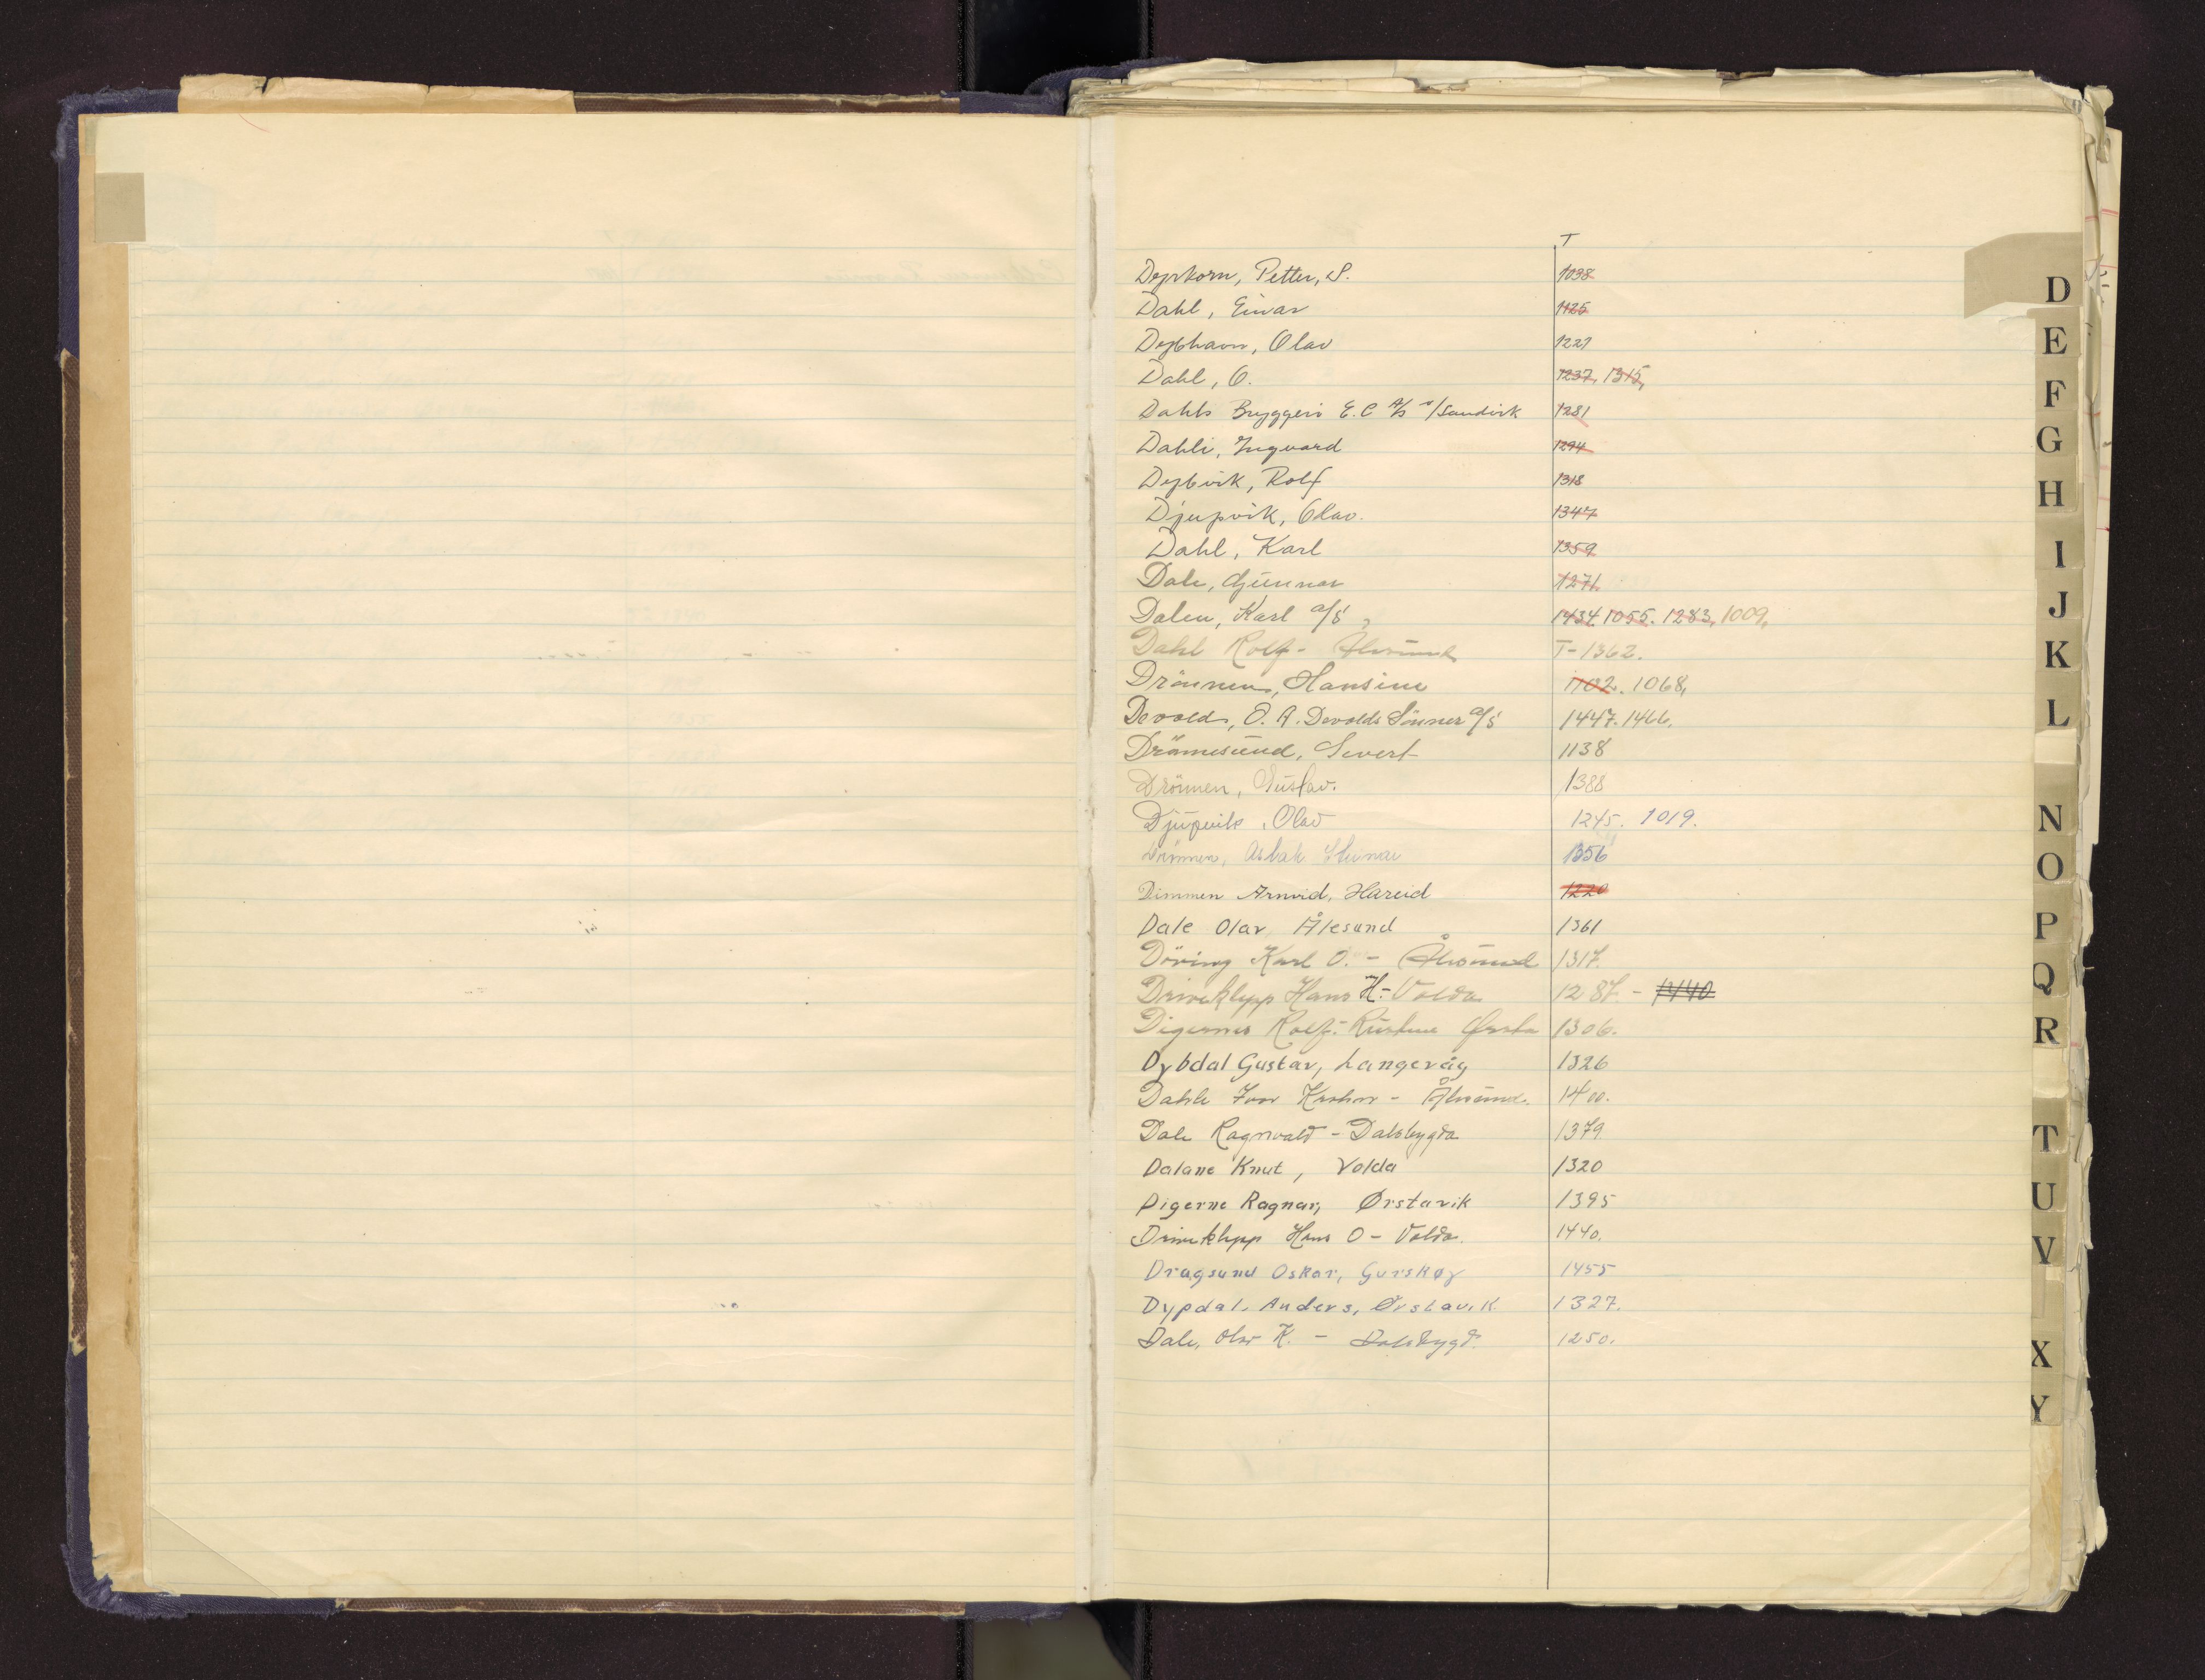 T
Dyrkorn, Petter, S. 1038
Dahl, Einar 1125
Dybhavn, Olav 1227
Dahl, O. 1237, 1315,
Dahls Bryggeri E.C A/S v/Sandvik 1281
Dahli, Ingvard 1294
Dybvik, Rolf 1318
Djupvik, Olav. 1347
Dahl, Karl 1359
Dale, Gunnar 1271.
Dalen, Karl a/s, 1434. 1055. 1283, 1009,
Dahl Rolf - Ålesund T-1362.
Drönnen, Hansine 1102. 1068,
Devolds, O. A. Devolds Sönner a/s 1447. 1466.
Drönnesund, Severt 1138
Drönnen, Gustav. 1388
Djupvik, Olav 1245. 1019.
Drönnen, Aslak 1356
Dimmen Arnvid, Hareid 1220
Dale Olav, Ålesund 1361
Döving Karl O. - Ålesund 1317.
Driveklepp Hans H. - Volda 1287 - 1440
Digernes Rolf. Ørsta 1306.
Dybdal Gustav, Langevåg 1326
Dahle Ivar - Ålesund. 1400.
Dale Ragnvald - Dalsbygda 1379
Dalane Knut, Volda 1320
Digerne Ragnar, Ørstavik 1395
Driveklepp Hans O - Volda. 1440.
Dragsund Oskar, Gurskøy 1455
Dypdal, Anders, Ørstavik 1327.
Dale, Olav K. - Dalsbygd. 1250.
D
E
F
G
H
I
J
K
L
N
O
P
Q
R
T
U
V
X
Y